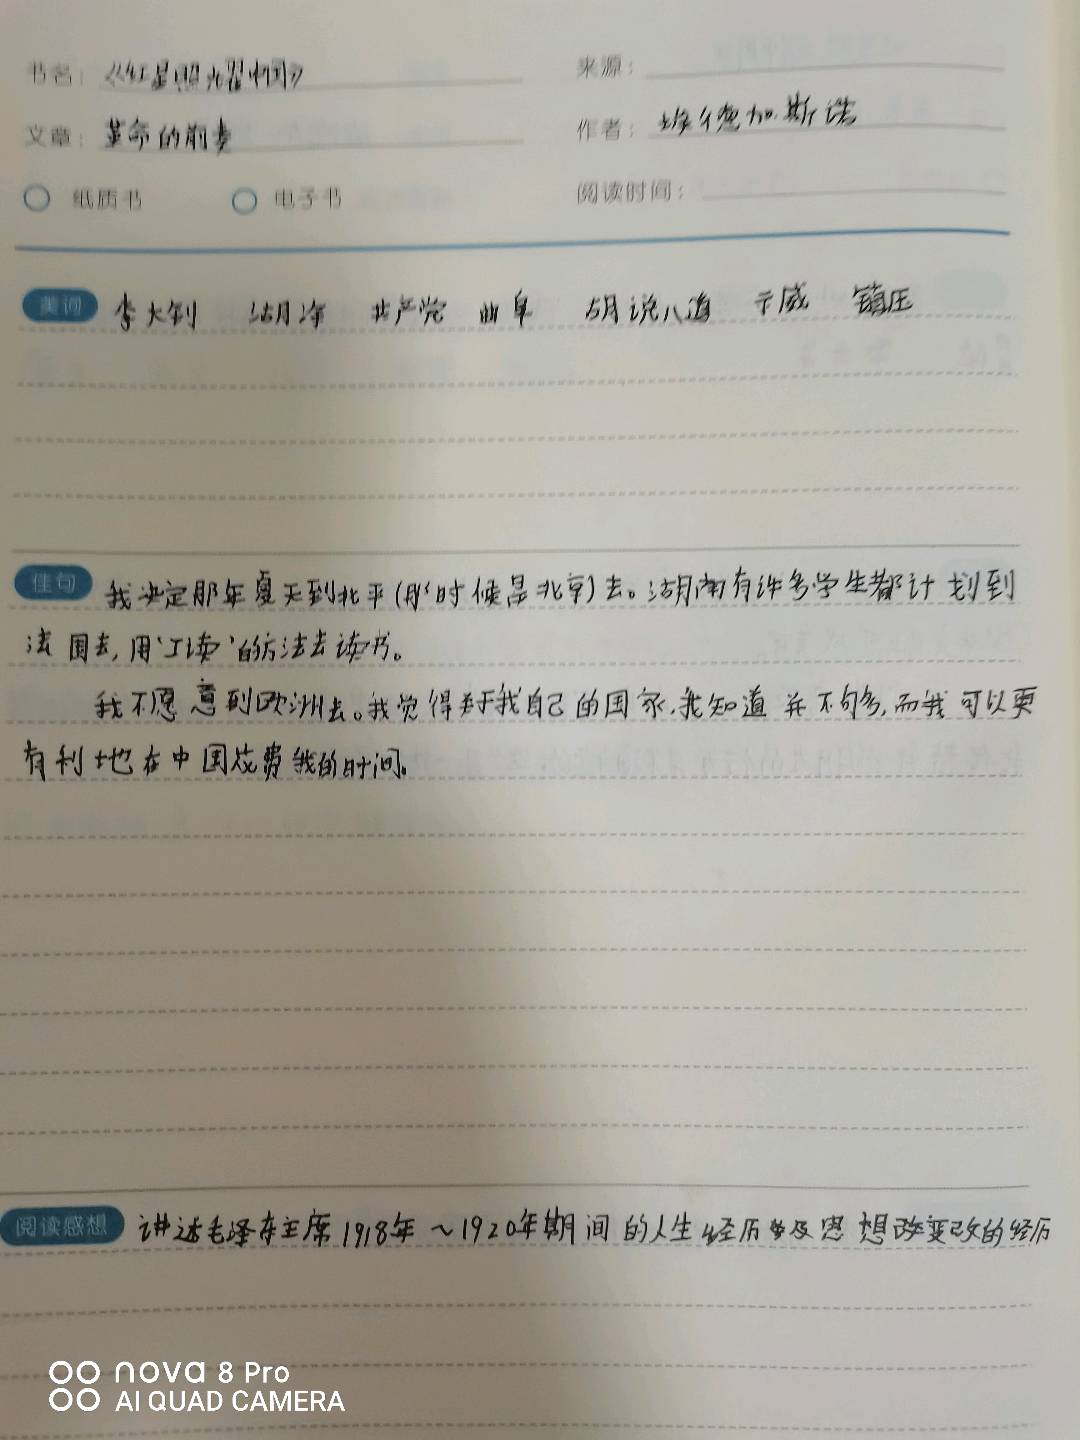 书名：《红星照耀中国》 来源：
文章：革命的前奏 作者：埃德加·斯诺
纸质书 电子书 阅读时间：
美词 李大钊 洁净 共产党 曲阜 胡说八道 示威 镇压
佳句 我决定那年夏天到北平(那时候是北京)去。湖南有许多学生都计划到
法国去,用'工读'的方法去读书。
我不愿意到欧洲去。我觉得关于我自己的国家,我知道并不够多,而我可以更
有利地在中国花费我的时间。
阅读感想 讲述毛泽东主席1918年~1920年期间的人生经历及思想改变的经历
nova 8 Pro
AI QUAD CAMERA